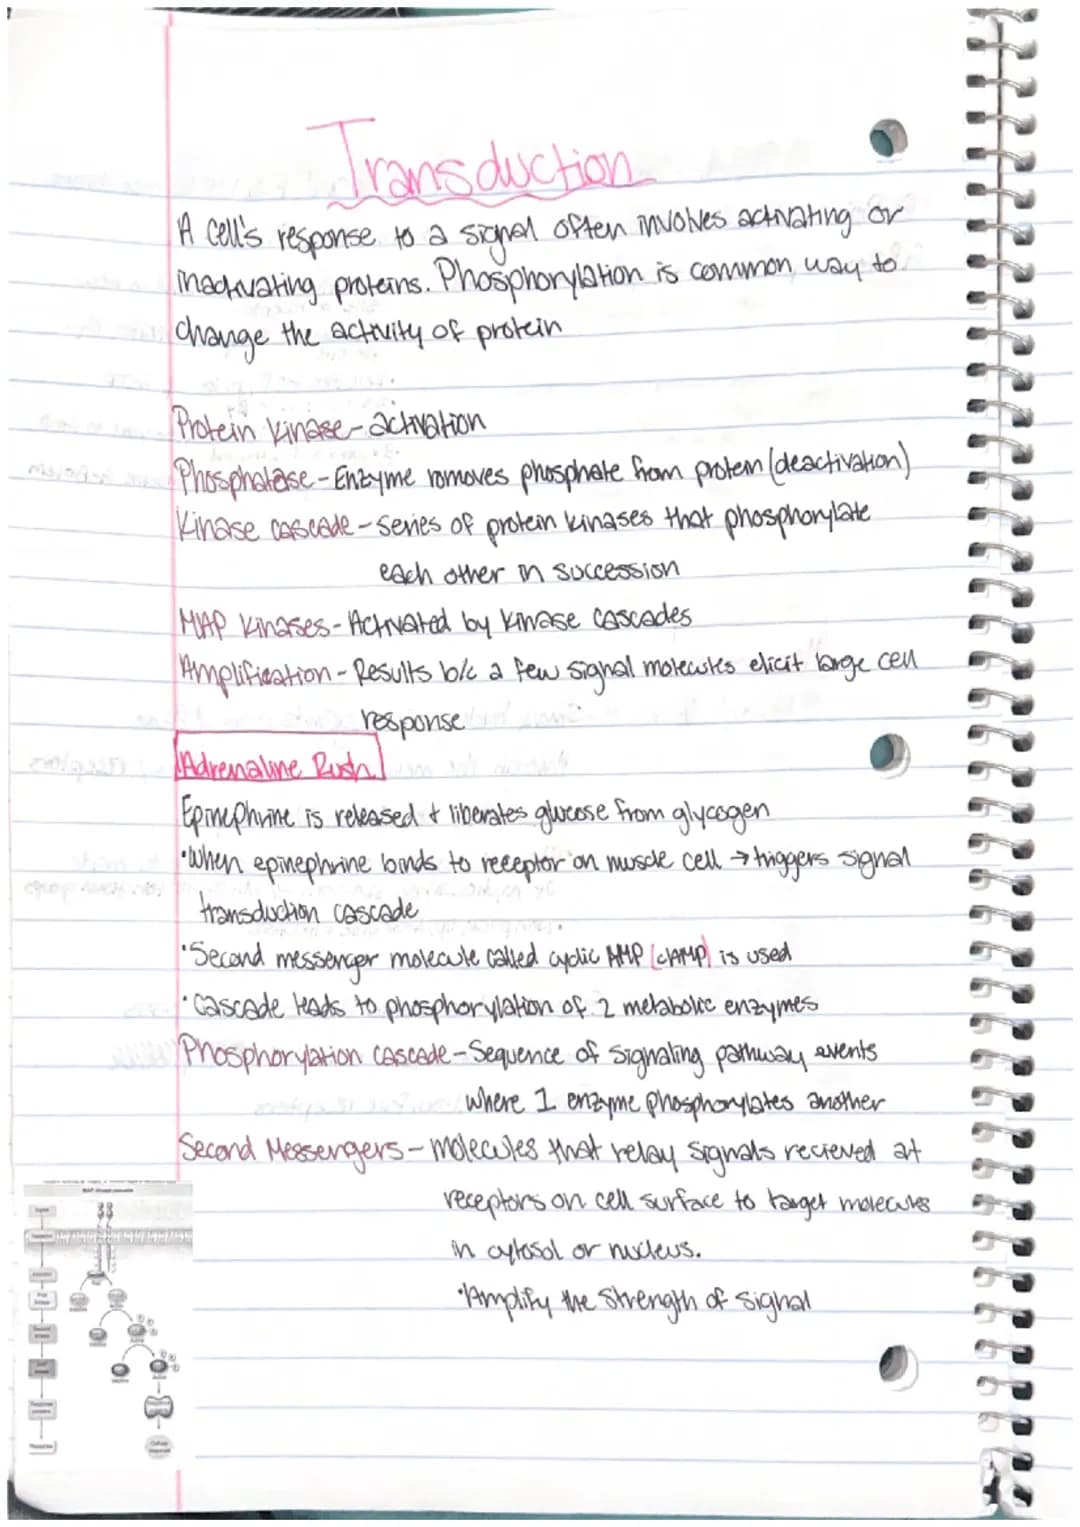 Transduction
A cell's response to a signal often involves activating or
inactivating proteins. Phosphorylation is common way to
change the activity of protein
Protein kinase - activation
Phosphatase - Enzyme romoves phosphate from protein (deactivation)
Kinase cascade - series of protein kinases that phosphorylate
each other in succession
MAP kinases - Activated by kinase cascades
Amplification - Results b/c a few signal molecules elicit large cell
response
Adrenaline Rush
Epinephrine is released + liberates glucose from glycogen
•When epinephrine binds to receptor on muscle cell → triggers signal
transduction cascade
•Second messenger molecule called cyclic AMP (cAMP) is used
•Cascade leads to phosphorylation of 2 metabolic enzymes
Phosphorylation cascade - Sequence of signaling pathway events
where 1 enzyme phosphorylates another
Second Messengers - molecules that relay signals recieved at
receptors on cell surface to target molecules
in cytosol or nucleus.
•Amplify the strength of signal